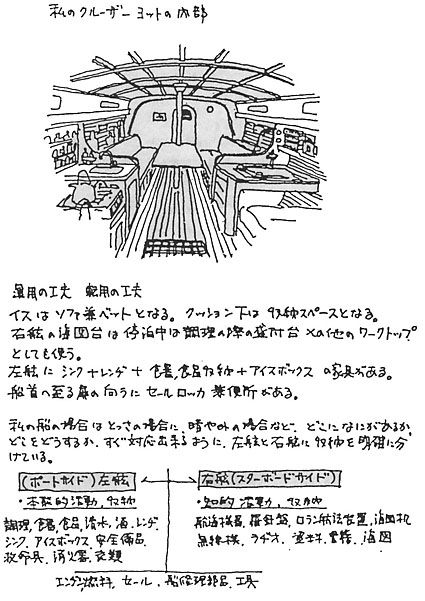 私のクルーザーヨットの内部
運用の工夫 転用の工夫
イスはソファ兼ベットとなる。クッション下は収納スペースとなる。
右舷の海図台は停泊中は調理の際の盛付台 又は他のワークトップ
としても使う。
左舷に シンク+レンジ + 食器,食品収納+アイスボックス の家具がある。
船首へ至る扉の向うにセールロッカ 兼便所がある。
私の船の場合はとっさの場合に、時やみの場合など、どこになにがあるか
どこをどうするか、すぐ対応出来るように、左舷と右舷に収納を明確に分
けている。
(ポートサイド)左舷
右舷(スターボードサイド)
・本能的活動,収納
・知的活動,収納
調理,食器,食品,清水,酒,レンジ,
シンク,アイスボックス 安全備品,
救命具,消火器,衣類
航海機器,羅針盤,ロラン航法装置,海図机
無線機,ラヂオ,書籍,海図
エンジン,燃料,セール,船修理部品,工具